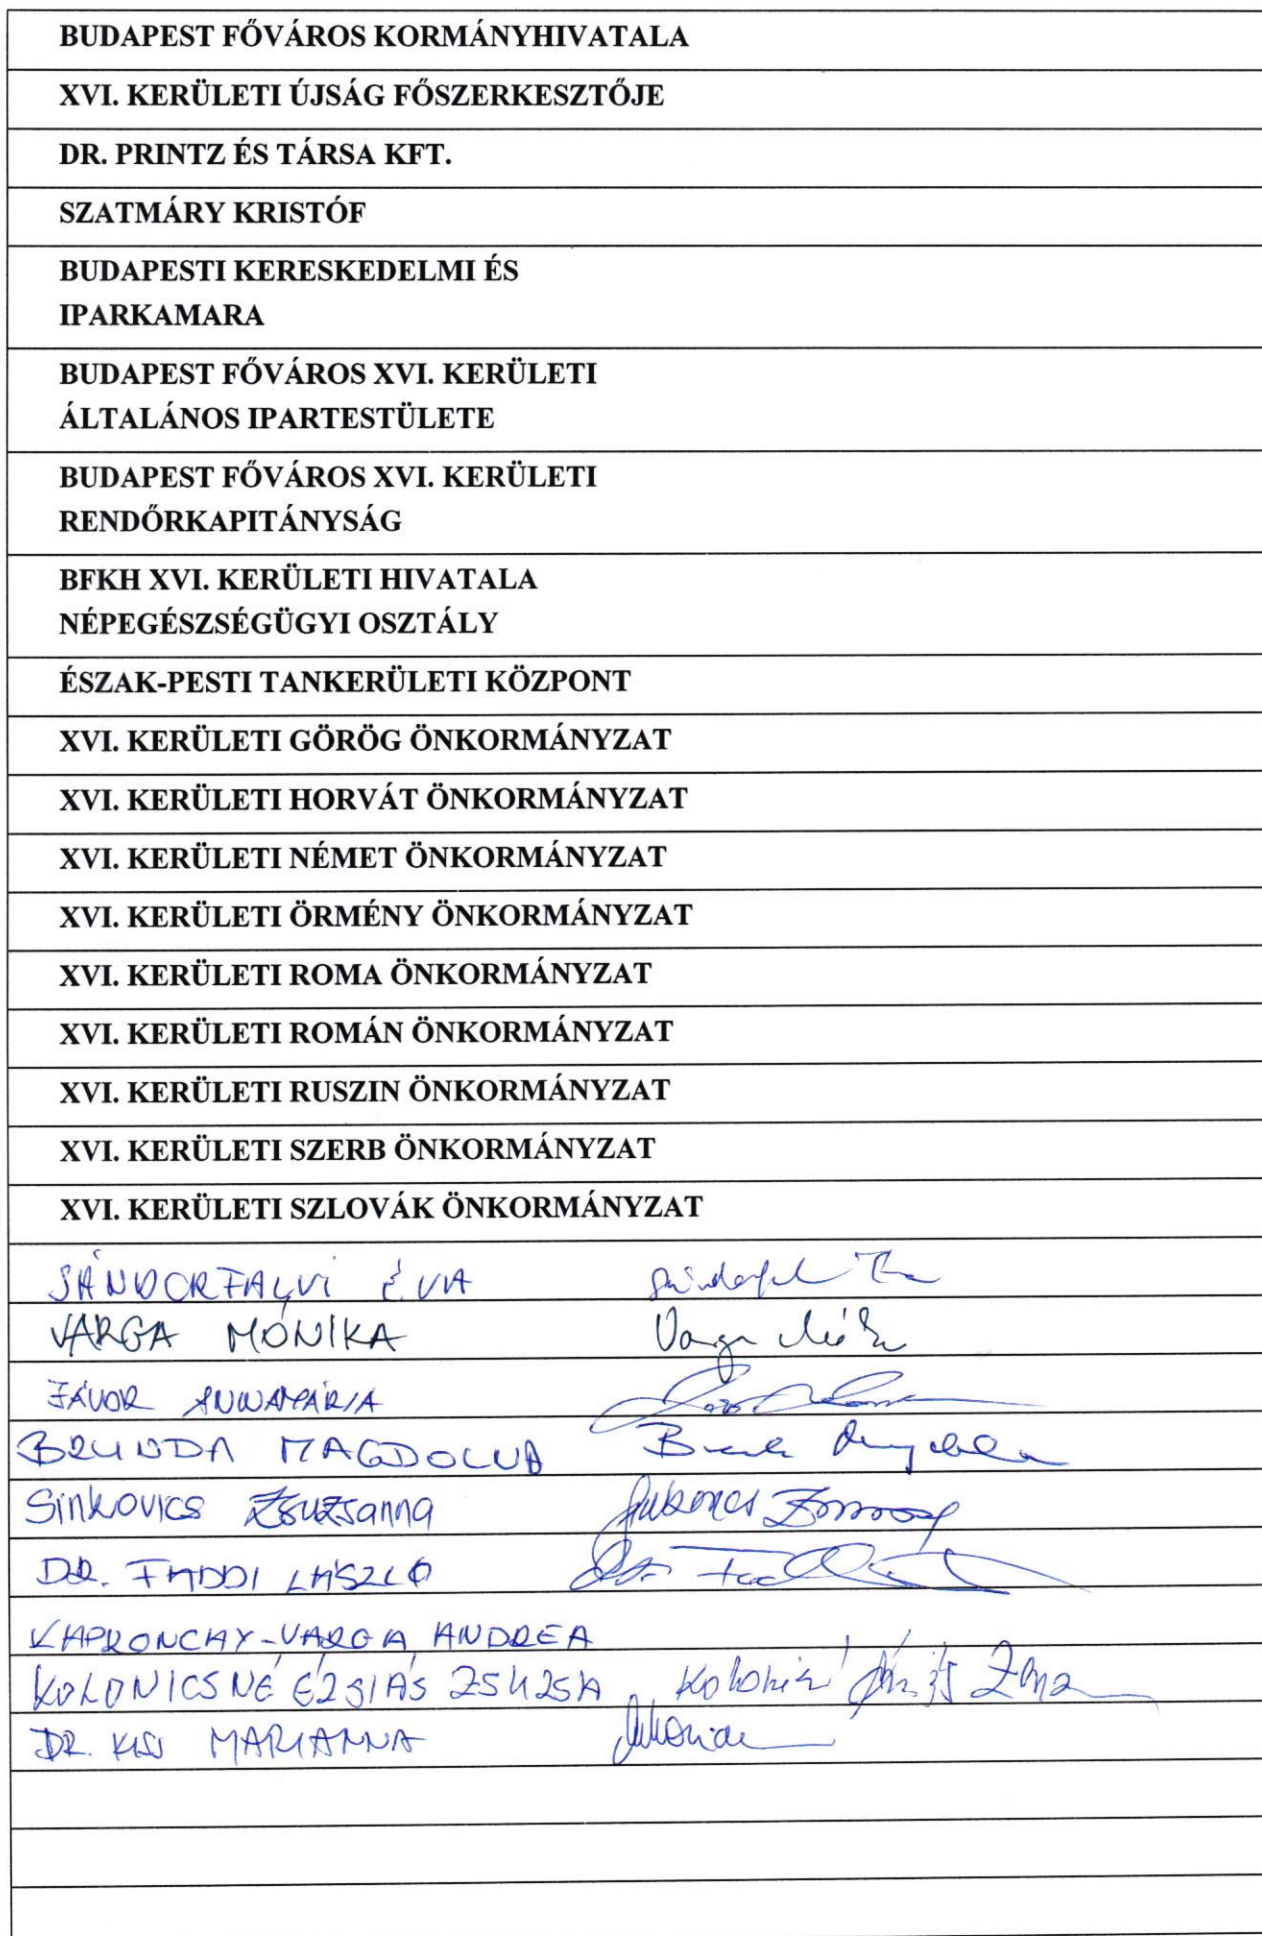 BUDAPEST FŐVÁROS KORMÁNYHIVATALA
XVI. KERÜLETI ÚJSÁG FŐSZERKESZTŐJE
DR. PRINTZ ÉS TÁRSA KFT.
SZATMÁRY KRISTÓF
BUDAPESTI KERESKEDELMI ÉS
IPARKAMARA
BUDAPEST FŐVÁROS XVI. KERÜLETI
ÁLTALÁNOS IPARTESTÜLETE
BUDAPEST FŐVÁROS XVI. KERÜLETI
RENDŐRKAPITÁNYSÁG
BFKH XVI. KERÜLETI HIVATALA
NÉPEGÉSZSÉGÜGYI OSZTÁLY
ÉSZAK-PESTI TANKERÜLETI KÖZPONT
XVI. KERÜLETI GÖRÖG ÖNKORMÁNYZAT
XVI. KERÜLETI HORVÁT ÖNKORMÁNYZAT
XVI. KERÜLETI NÉMET ÖNKORMÁNYZAT
XVI. KERÜLETI ÖRMÉNY ÖNKORMÁNYZAT
XVI. KERÜLETI ROMA ÖNKORMÁNYZAT
XVI. KERÜLETI ROMÁN ÖNKORMÁNYZAT
XVI. KERÜLETI RUSZIN ÖNKORMÁNYZAT
XVI. KERÜLETI SZERB ÖNKORMÁNYZAT
XVI. KERÜLETI SZLOVÁK ÖNKORMÁNYZAT
SÁNDORFALVI ÉVA
VARGA MÓNIKA Varga
JÁVOR ANNAMÁRIA
BRUNDA MAGDOLNA
Sinkovics Zsuzsanna
DR. FADDI LÁSZLÓ
KAPRONCHAY-VARGA ANDREA
KOLONICSNÉ ÉZSIÁS ZSUZSA
DR. KISS MARIANNA